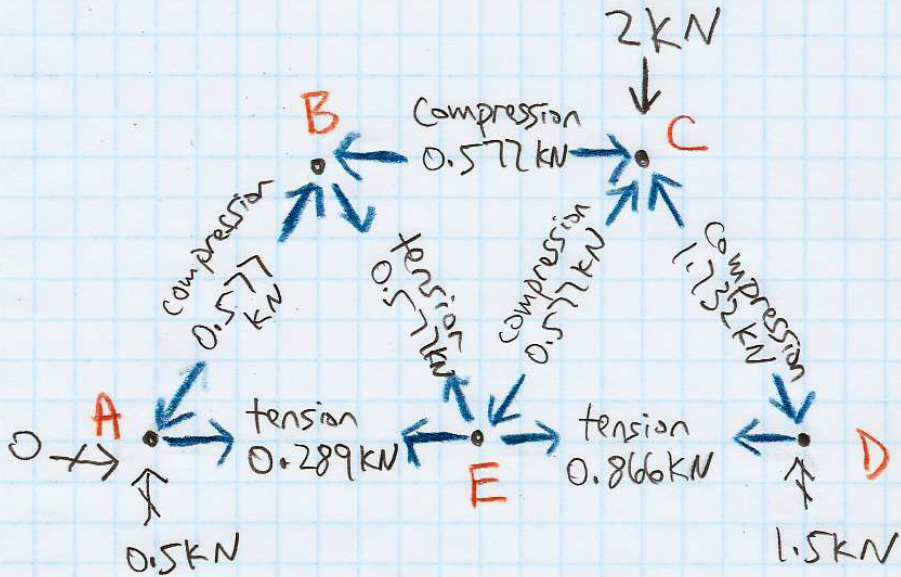 2KN
B
Compression
0.577KN
C
compression
0.577
KN
tension
0.577KN
compression
0.577KN
compression
1.732KN
A
tension
0.289KN
E
tension
0.866KN
D
0
0.5KN
1.5KN